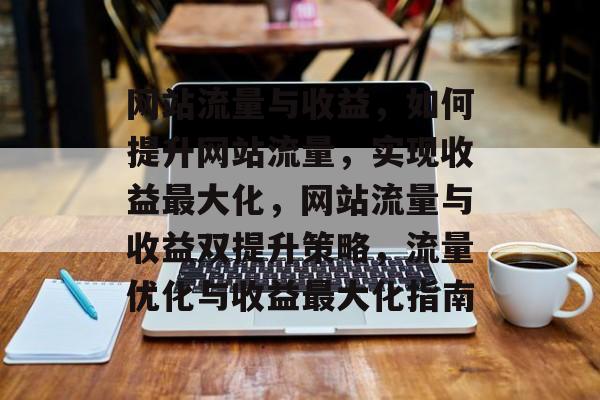 网站流量与收益，如何
提升网站流量，实现收
益最大化，网站流量与
收益双提升策略，流量
优化与收益最大化指南